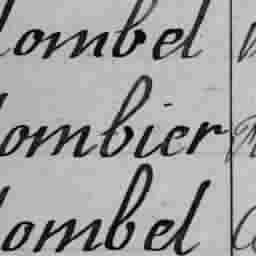 lombel
lombier
lombel